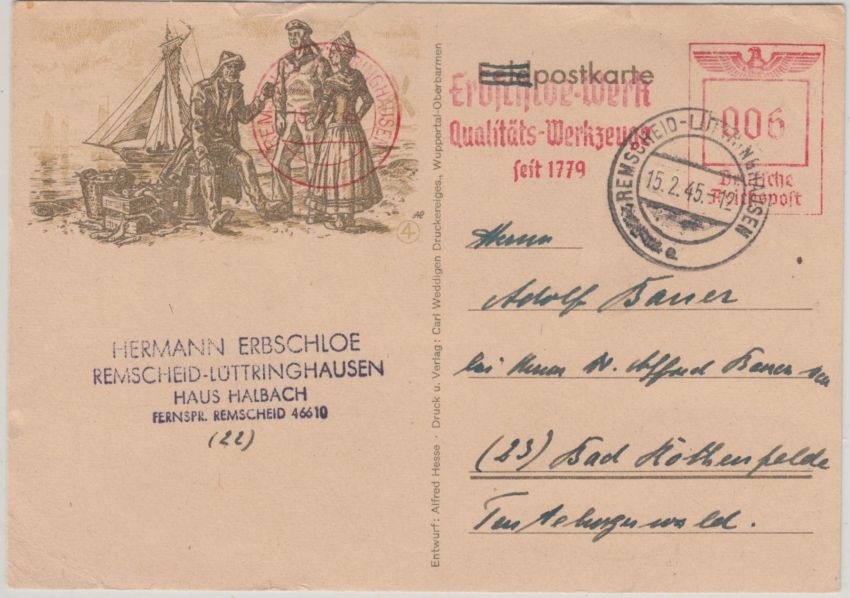 Feldpostkarte
Erbschloe-Werk
Qualitäts-Werkzeuge
seit 1779
006
Deutsche
Reichspost
REMSCHEID-LÜTTRINGHAUSEN
15.2.45.-12
a
REMSCHEID-LÜTTRINGHAUSEN
AH
4
HERMANN ERBSCHLOE
REMSCHEID-LÜTTRINGHAUSEN
HAUS HALBACH
FERNSPR. REMSCHEID 46610
(22)
Entwurf: Alfred Hesse · Druck u. Verlag: Carl Weddigen Druckereiges., Wuppertal-Oberbarmen
Herrn
Adolf Bauer
bei Herrn Dr. Alfred Bauer sen
(23) Bad Rothenfelde
Teutoburgerwald.